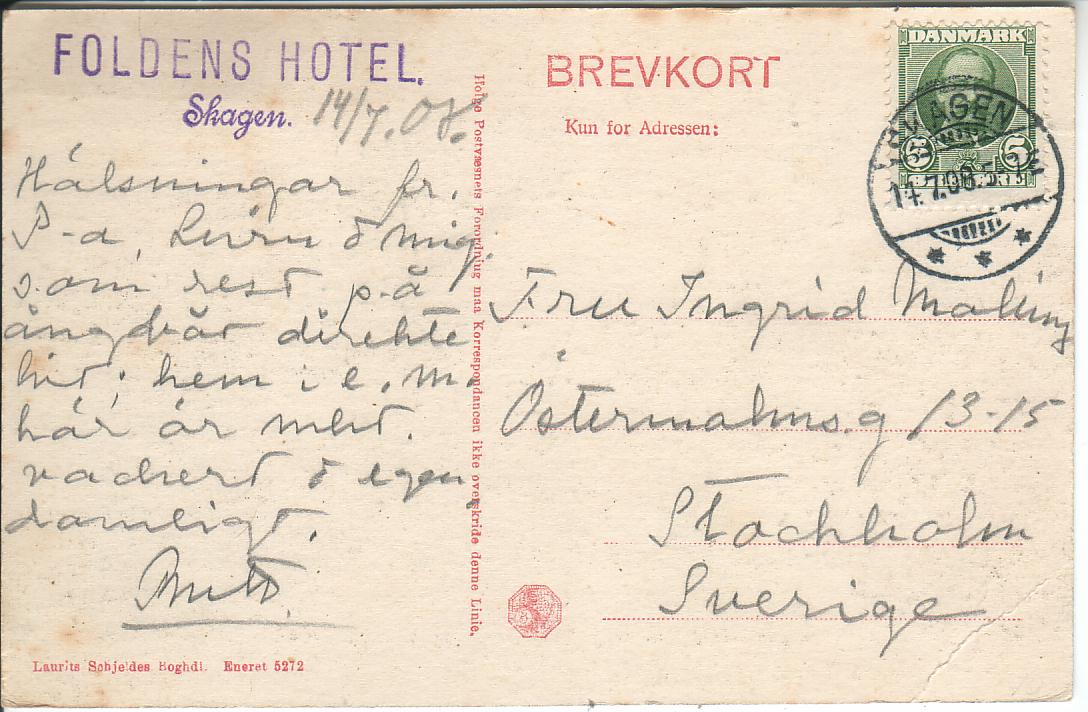 FOLDENS HOTEL.
Skagen.
14/7.08.
Hälsningar fr.
P-a, & mig.
som rest på
ångbåt direkte
hit; hem i e.m.
här är mkt.
vackert & egen
domligt.
Holge Postvæsnets Forordning maa Korrespondancen ikke overskride denne Linie.
Laurits Schjeldes Boghdl. Eneret 5272
BREVKORT
Kun for Adressen:
DANMARK
5 5
SKAGEN
14.7.08.
Fru Ingrid Malling
Östermalms.g 13-15
Stockholm
Sverige